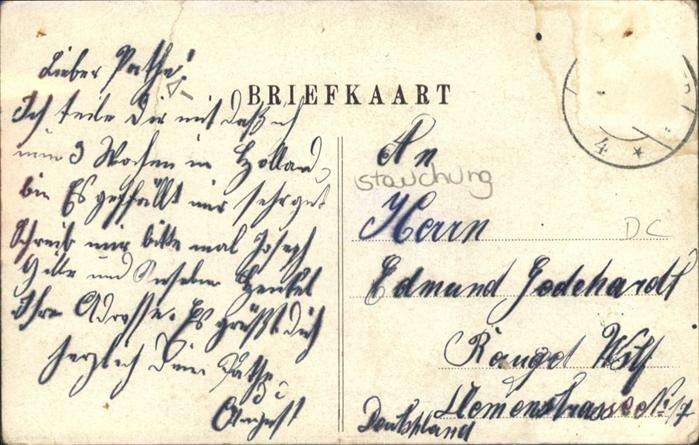 BRIEFKAART
Lieber Pathe!
Ich teile Dir mit daß ich
nun 3 Wochen in Holland
bin Es gefällt mir sehr gut
Schreib mir bitte mal Joseph
und Henkel
Ihre Adresse. Es grüßt dich
herzlich Dein Pathe
August
An
stauchung
Herrn
DC
Edmund Godehardt
Wilf
No 17
Deutschland
4 *